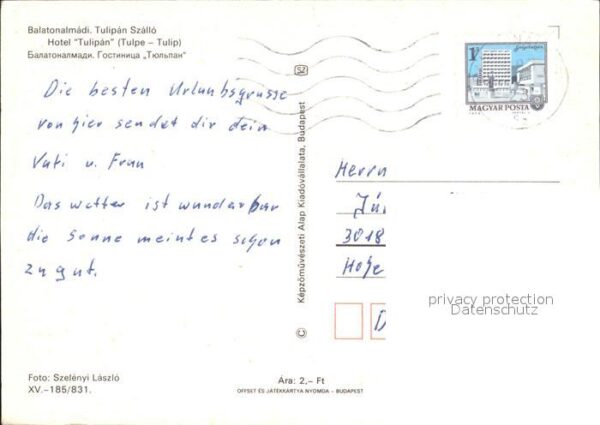 Balatonalmádi. Tulipán Szálló
Hotel "Tulipán" (Tulpe – Tulip)
Балатоналмади. Гостиница „Тюльпан"
Die besten Urlaubsgrüsse
von hier sendet dir dein
Vati u. Frau
Das wetter ist wunderbar
die Sonne meint es schon
zu gut.
Foto: Szelényi László
XV.–185/831.
SZ
© Képzőművészeti Alap Kiadóvállalata, Budapest
Ára: 2,– Ft
OFFSET ÉS JÁTÉKKÁRTYA NYOMDA – BUDAPEST
1 Ft
MAGYAR POSTA
Herrn
3018
D
privacy protection
Datenschutz